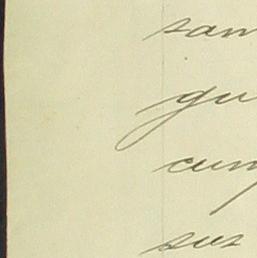 san
gu
cum
sus